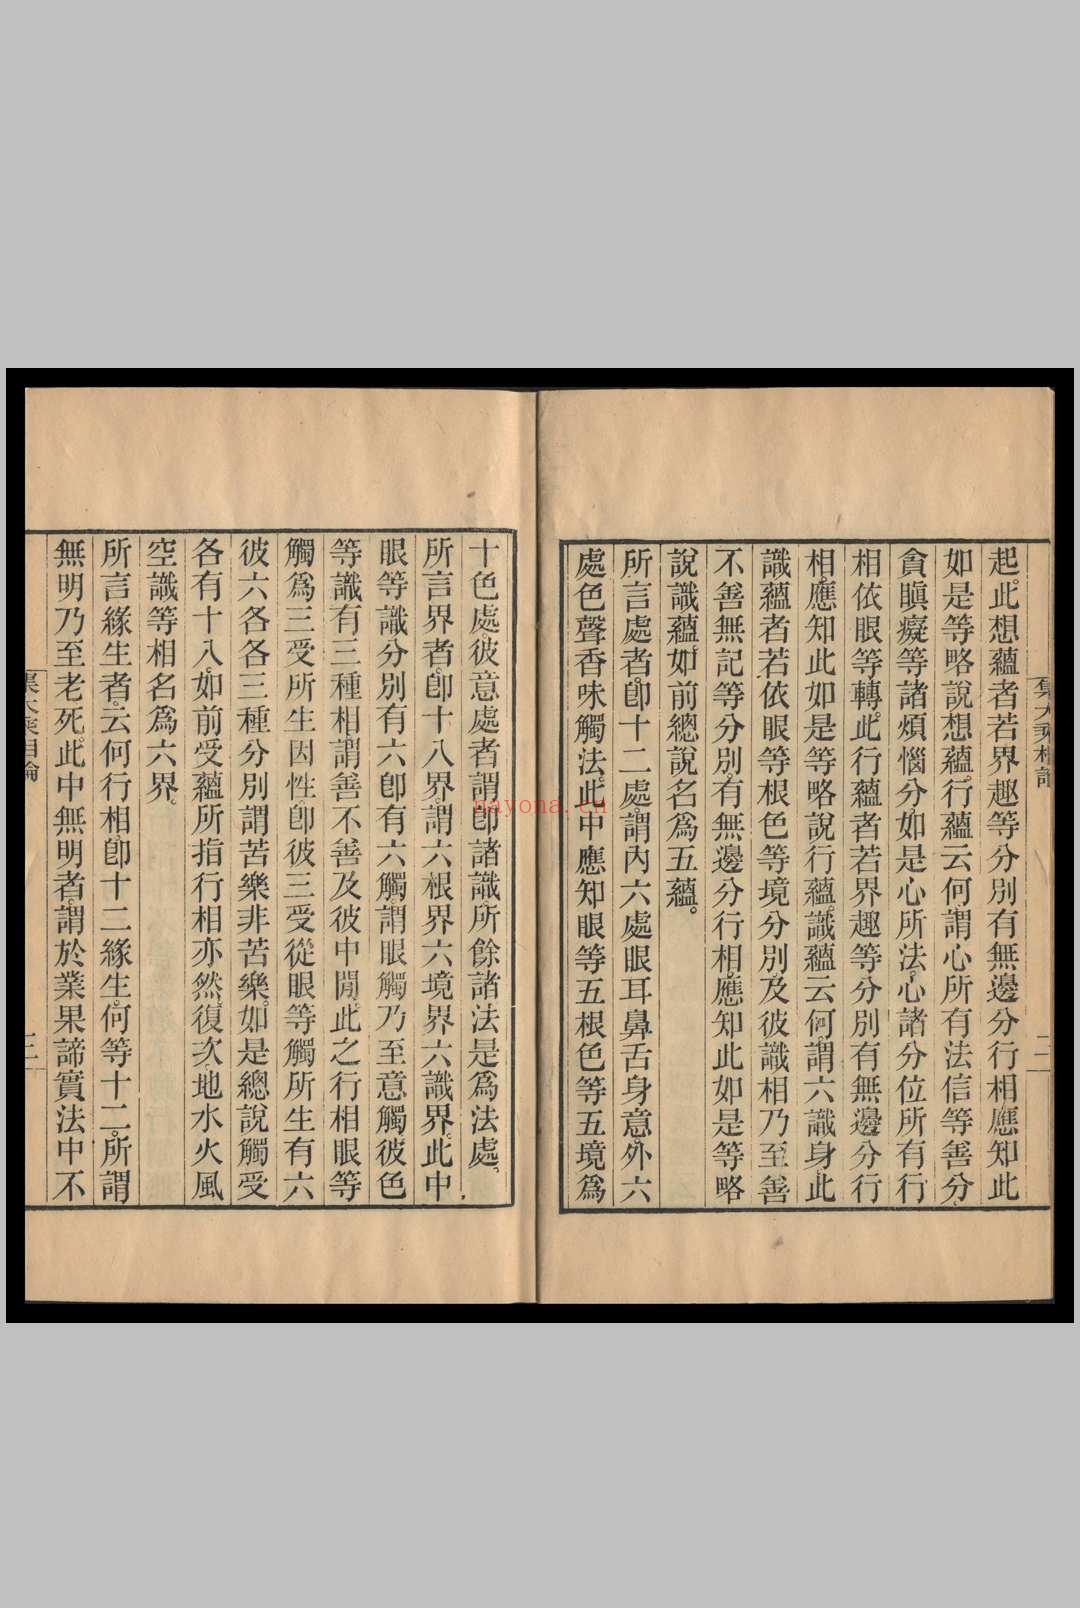 集大乘相論
二
起。此想蘊者若界趣等分別有無邊分行相應知此
如是等略說想蘊。行蘊云何。謂心所有法信等善分。
貪瞋癡等諸煩惱分如是心所法。心諸分位所有行
相依眼等轉。此行蘊者若界趣等分別有無邊分行
相。應知此如是等略說行蘊。識蘊云何。謂六識身。此
識蘊者若依眼等根色等境分別。及彼識相乃至善
不善無記等分別。有無邊分行相。應知此如是等略
說識蘊。如前總說名爲五蘊。
所言處者。卽十二處。謂內六處眼耳鼻舌身意。外六
處色聲香味觸法。此中應知眼等五根色等五境爲
十色處。彼意處者謂卽諸識。所餘諸法是爲法處。
所言界者。卽十八界。謂六根界六境界六識界。此中
眼等識分別有六卽有六觸。謂眼觸乃至意觸彼色
等識有三種相。謂善不善及彼中閒。此之行相眼等
觸爲三受所生因性。卽彼三受從眼等觸所生有六
彼六各各三種分別謂苦樂非苦樂。如是總說觸受
各有十八。如前受蘊所指行相亦然。復次。地水火風
空識等相名爲六界。
所言緣生者。云何行相。卽十二緣生。何等十二。所謂
無明乃至老死。此中無明者。謂於業果諦實法中不
集大乘相論
三
nayona.cn